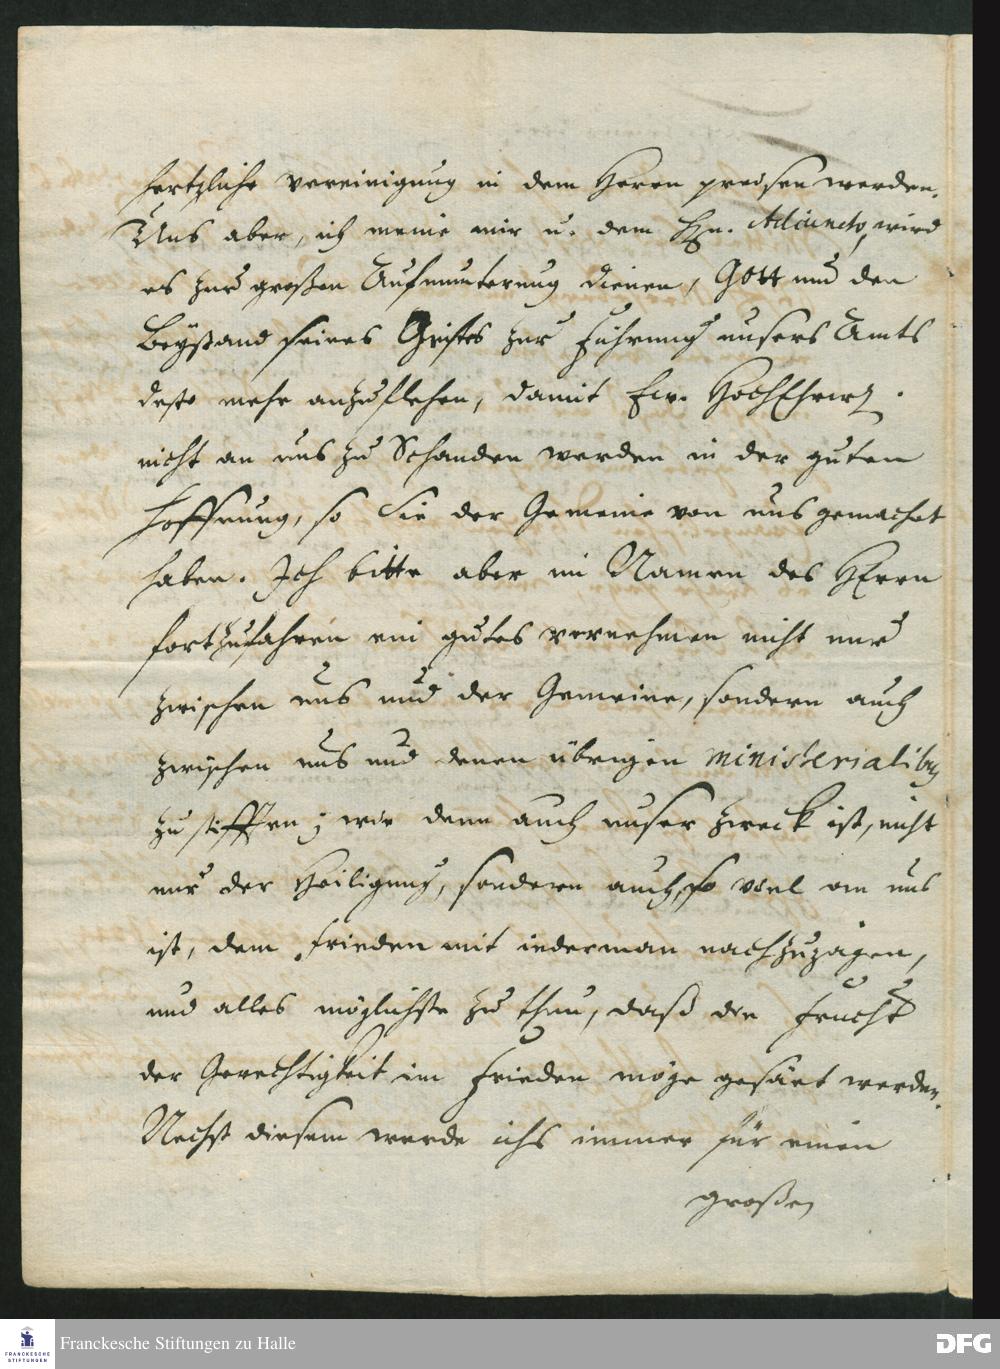 hertzliche vereinigung in dem Herrn preisen werden.
Uns aber, ich meine mir u. dem Hn. Adiuncto, wird
es zur großen Aufmunterung dienen, Gott um den
Beystand seines Geistes zur Führung unsers Amts
desto mehr anzuflehen, damit Ew. HochEhrw.
nicht an uns zu Schanden werden in der guten
Hoffnung, so Sie der Gemeine von uns gemachet
haben. Ich bitte aber im Namen des HErrn
fortzufahren ein gutes vernehmen nicht nur
zwischen uns und der Gemeine, sondern auch
zwischen uns und denen übrigen ministerialibus
zu stifften; wie denn auch unser Zweck ist, nicht
nur der Heiligung, sondern auch, so viel an uns
ist, dem Frieden mit iederman nachzujagen,
und alles möglichste zu thun, daß die Frucht
der Gerechtigkeit im Frieden möge gesäet werden.
Nechst diesem werde ichs immer für einen
großen
Franckesche Stiftungen zu Halle
FRANCKESCHE
STIFTUNGEN
DFG